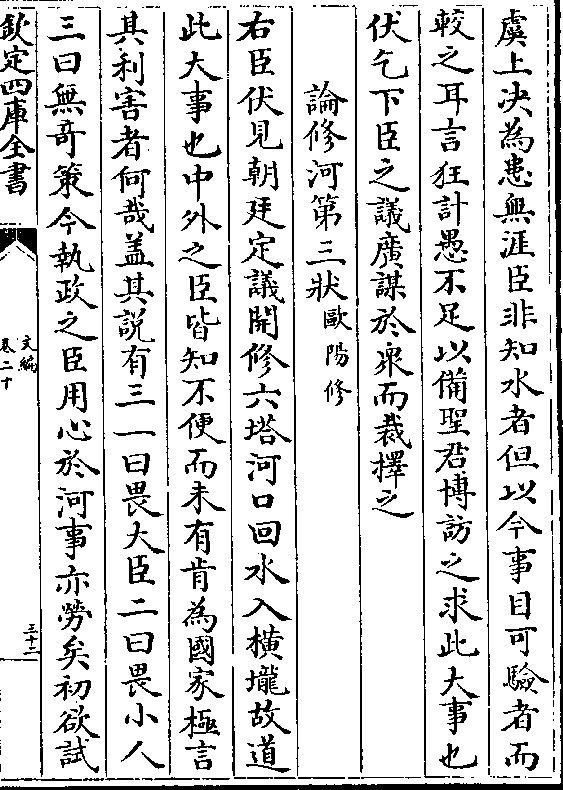 虞上决為患無涯臣非知水者但以今事目可驗者而
較之耳言狂計愚不足以備聖君博訪之求此大事也
伏乞下臣之議廣謀於衆而裁擇之
論修河第三狀歐陽修
右臣伏見朝廷定議開修六塔河口回水入橫壠故道
此大事也中外之臣皆知不便而未有肯為國家極言
其利害者何哉盖其說有三一曰畏大臣二曰畏小人
三曰無竒策今執政之臣用心於河事亦勞矣初欲試
欽定四庫全書
文編
卷二十
三十二